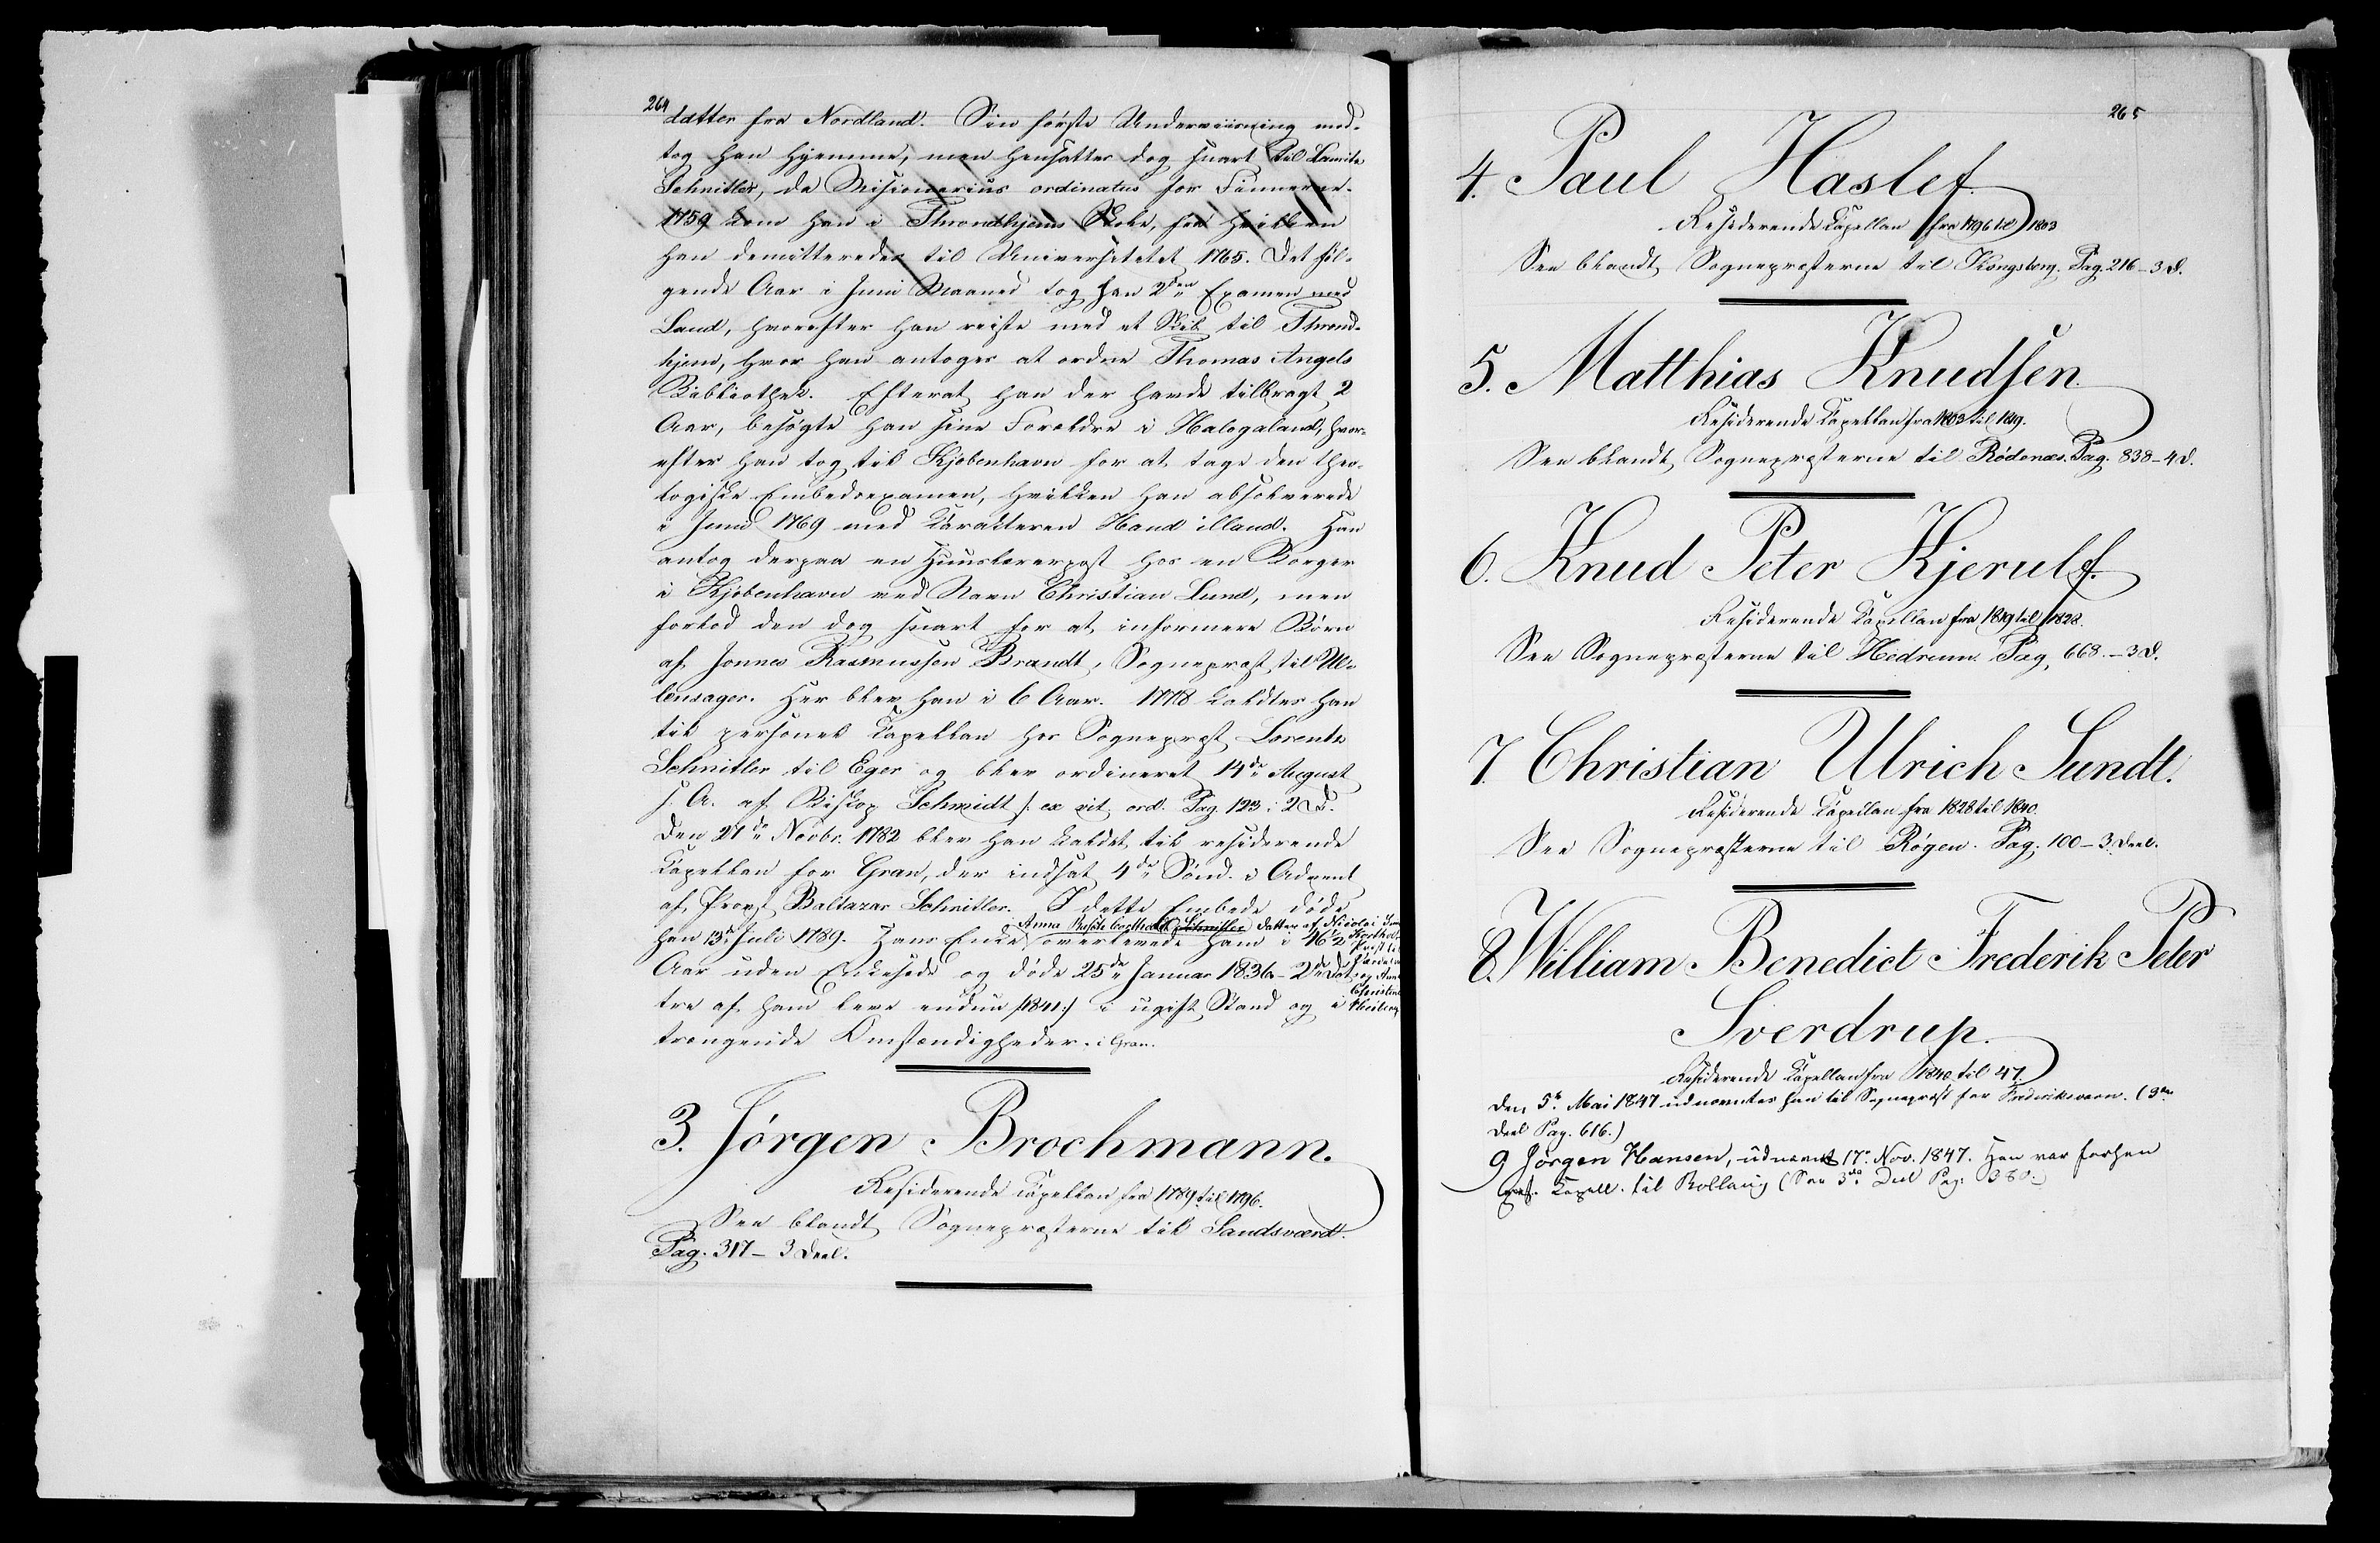 264
datter fra Nordland. Sin første Underviisning mod-
tog han hjemme, men hensattes dog snart til
Schnitler, da Missionarius ordinatus for Finnerne.
1759 kom han i Throndhjems Skole, fra hvilken
han demitteredes til Universitetet 1765. Det føl-
gende Aar i Juni Maaned tog han 2den Examen med
Laud, hvorefter han reiste med et Skib til Thrond-
hjem, hvor han antoges at ordne Thomas Angels
Bibliothek. Efterat han der havde tilbragt 2
Aar, besøgte han sine Forældre i Halogaland, hvor-
efter han tog til Kjøbenhavn for at tage den theo-
logiske Embedsexamen, hvilken han absolverede
i Juni 1769 med Karakteren Haud illaud. Han
antog derpaa en Huuslærerpost hos en Borger
i Kjøbenhavn ved Navn Christian Lund, men
forlod den dog snart for at informere Børn
af Jonnes Rasmussen Brandt, Sognepræst til Ul-
lensager. Her blev han i 6 Aar. 1778 kaldtes han
til personel Kapellan hos Sognepræst Lorents
Schnitler til Eger og blev ordineret 14de August
s. A. af Biskop Schmidt /: ex vit. ord. Pag. 123 i 2 D.
Den 27de Novbr. 1782 blev han kaldet til residerende
Kapellan for Gran, der indsat 4de Sønd. i Advent
af Provst Baltazar Schnitler. I dette Embede døde
Anna Schnitler Datter af Nicolai
han 13de Juli 1789. Hans Enke overlevede ham i 46 1/2
Aar uden Enkesæde og døde 25de Januar 1836 - 2de Døt-
Christine
tre af ham leve endnu /1841:/ i ugift Stand og i
trængende Omstændigheder i Gran.
3. Jørgen Brochmann.
Residerende Kapellan fra 1789 til 1796.
See blandt Sognepræsterne til Sandsværd.
Pag. 317 - 3 Deel.
265
4. Paul Haslef
Residerende Kapellan fra 1796 til 1803
See blandt Sognepræsterne til Kongsberg. Pag. 216 - 3 D.
5. Matthias Knudsen
Residerende Kapellan fra 1803 til 1819.
See blandt Sognepræsterne til Rødenæs. Pag. 838 - 4 D.
6. Knud Peter Kjerulf.
Residerende Kapellan fra 1819 til 1828.
See Sognepræsterne til Hedrum. Pag. 668. - 3 D.
7. Christian Ulrich Sundt.
Residerende Kapellan fra 1828 til 1840.
See Sognepræsterne til Røgen. Pag. 100 - 3 Deel.
8. William Benedict Frederik Peter
Sverdrup.
Residerende Kapellan fra 1840 til 47
Den 5te Mai 1847 udnævntes han til Sognepræst for Frederiksværn. (3die
Deel Pag. 616.)
9 Jörgen Hansen, udnævnt 17de Nov. 1847. Han var forhen
Kapell. til Rollaug (See 3die Deel Pag. 380.)